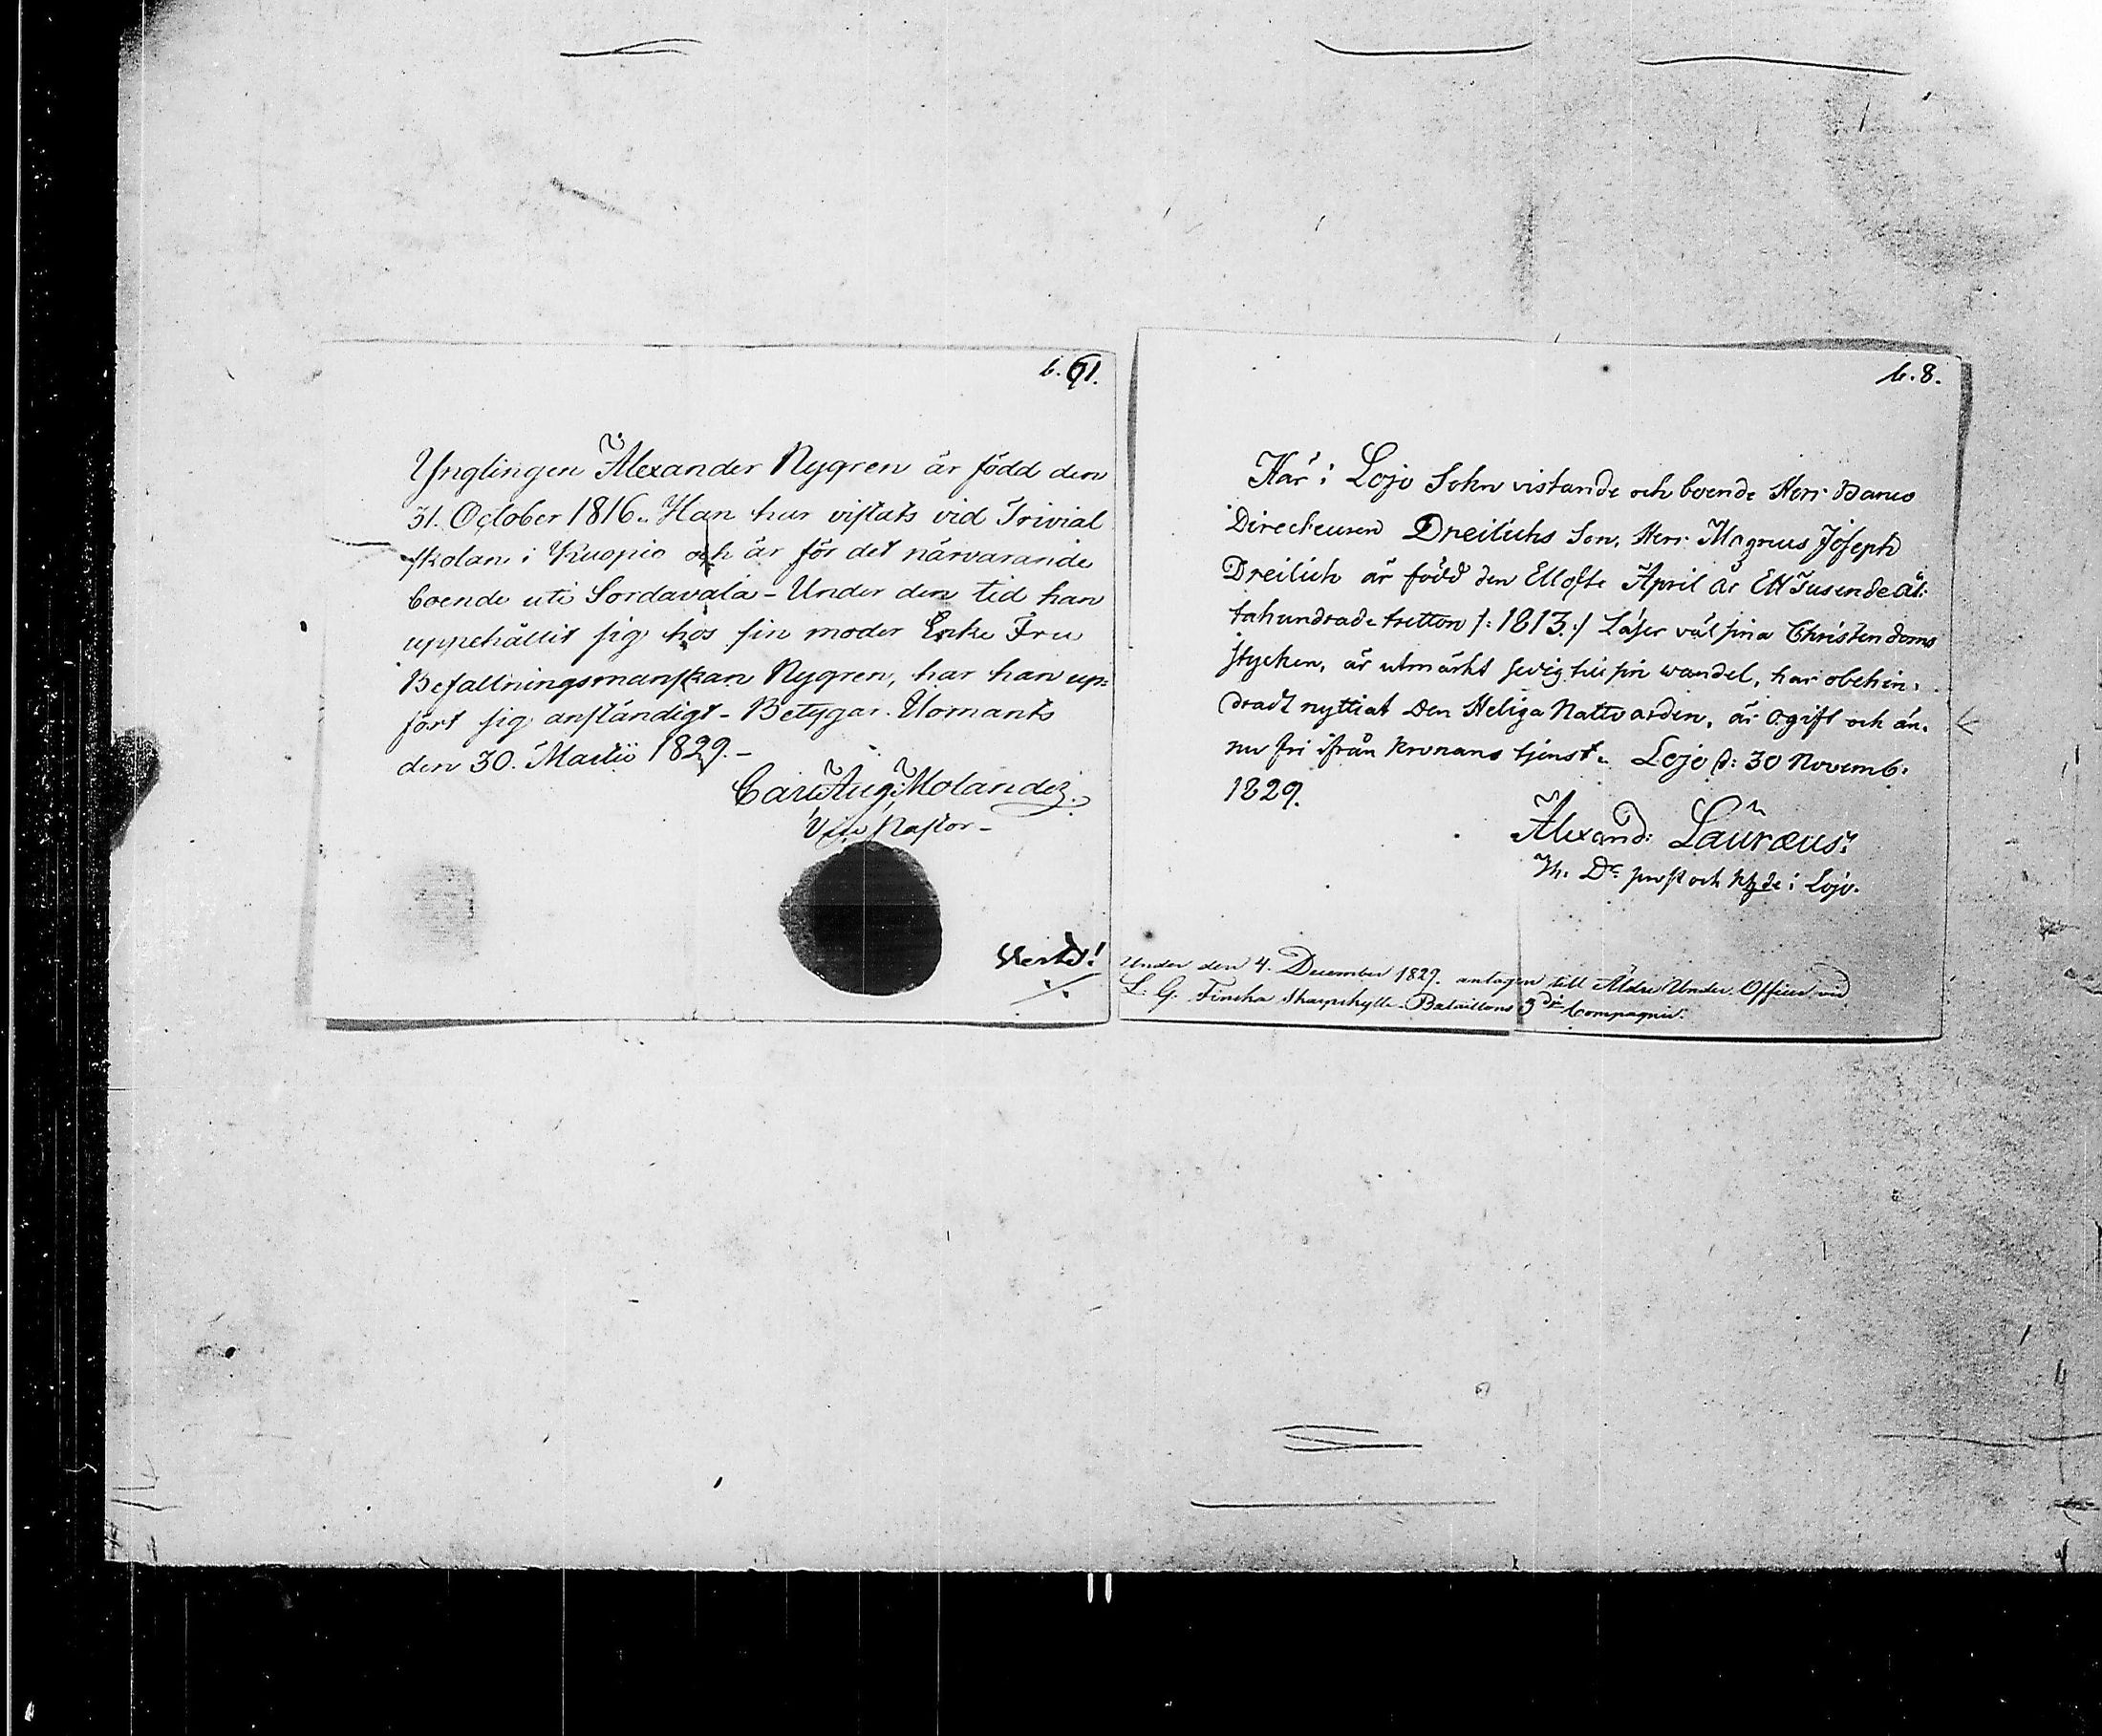 b. 61.
Ynglingen Alexander Nygren är född den
31. October 1816. Han har vistats vid Trivial
skolan i Kuopio och är för det närvarande
boende uti Sordavala - Under den tid han
uppehållit sig hos sin moder Enke Fru
Befallningsmanskan Nygren, har han up=
fört sig anständigt - Betygar. Uomants
den 30. Martii 1829. -
Carl Aug. Molander.
Vice Pastor -
Vertd!
b. 8.
Här i Lojo Sokn vistande och boende Herr Banco
Direcheuren Dreilichs Son, Herr Magnus Joseph
Dreilich är född den Ellofte April År Ett Tusende åt:
tahundrade tretton /: 1813. :/ Läser väl sina Christendoms
stycken, är utmärkt sedig till sin wandel, har obehin.
dradt nyttiat Den Heliga Nattvarden, är ogift och än.
nu fri ifrån Kronans tjenst. Lojo d: 30 Novemb.
1829.
Alexand: Lauræus.
Th. Dr. prost och Khde i Lojo.
Under den 4. December 1829. antagen till Äldre Under Officer vid
L. G. Finska Skarpskytte-Bataillons 3dje Compagnie.